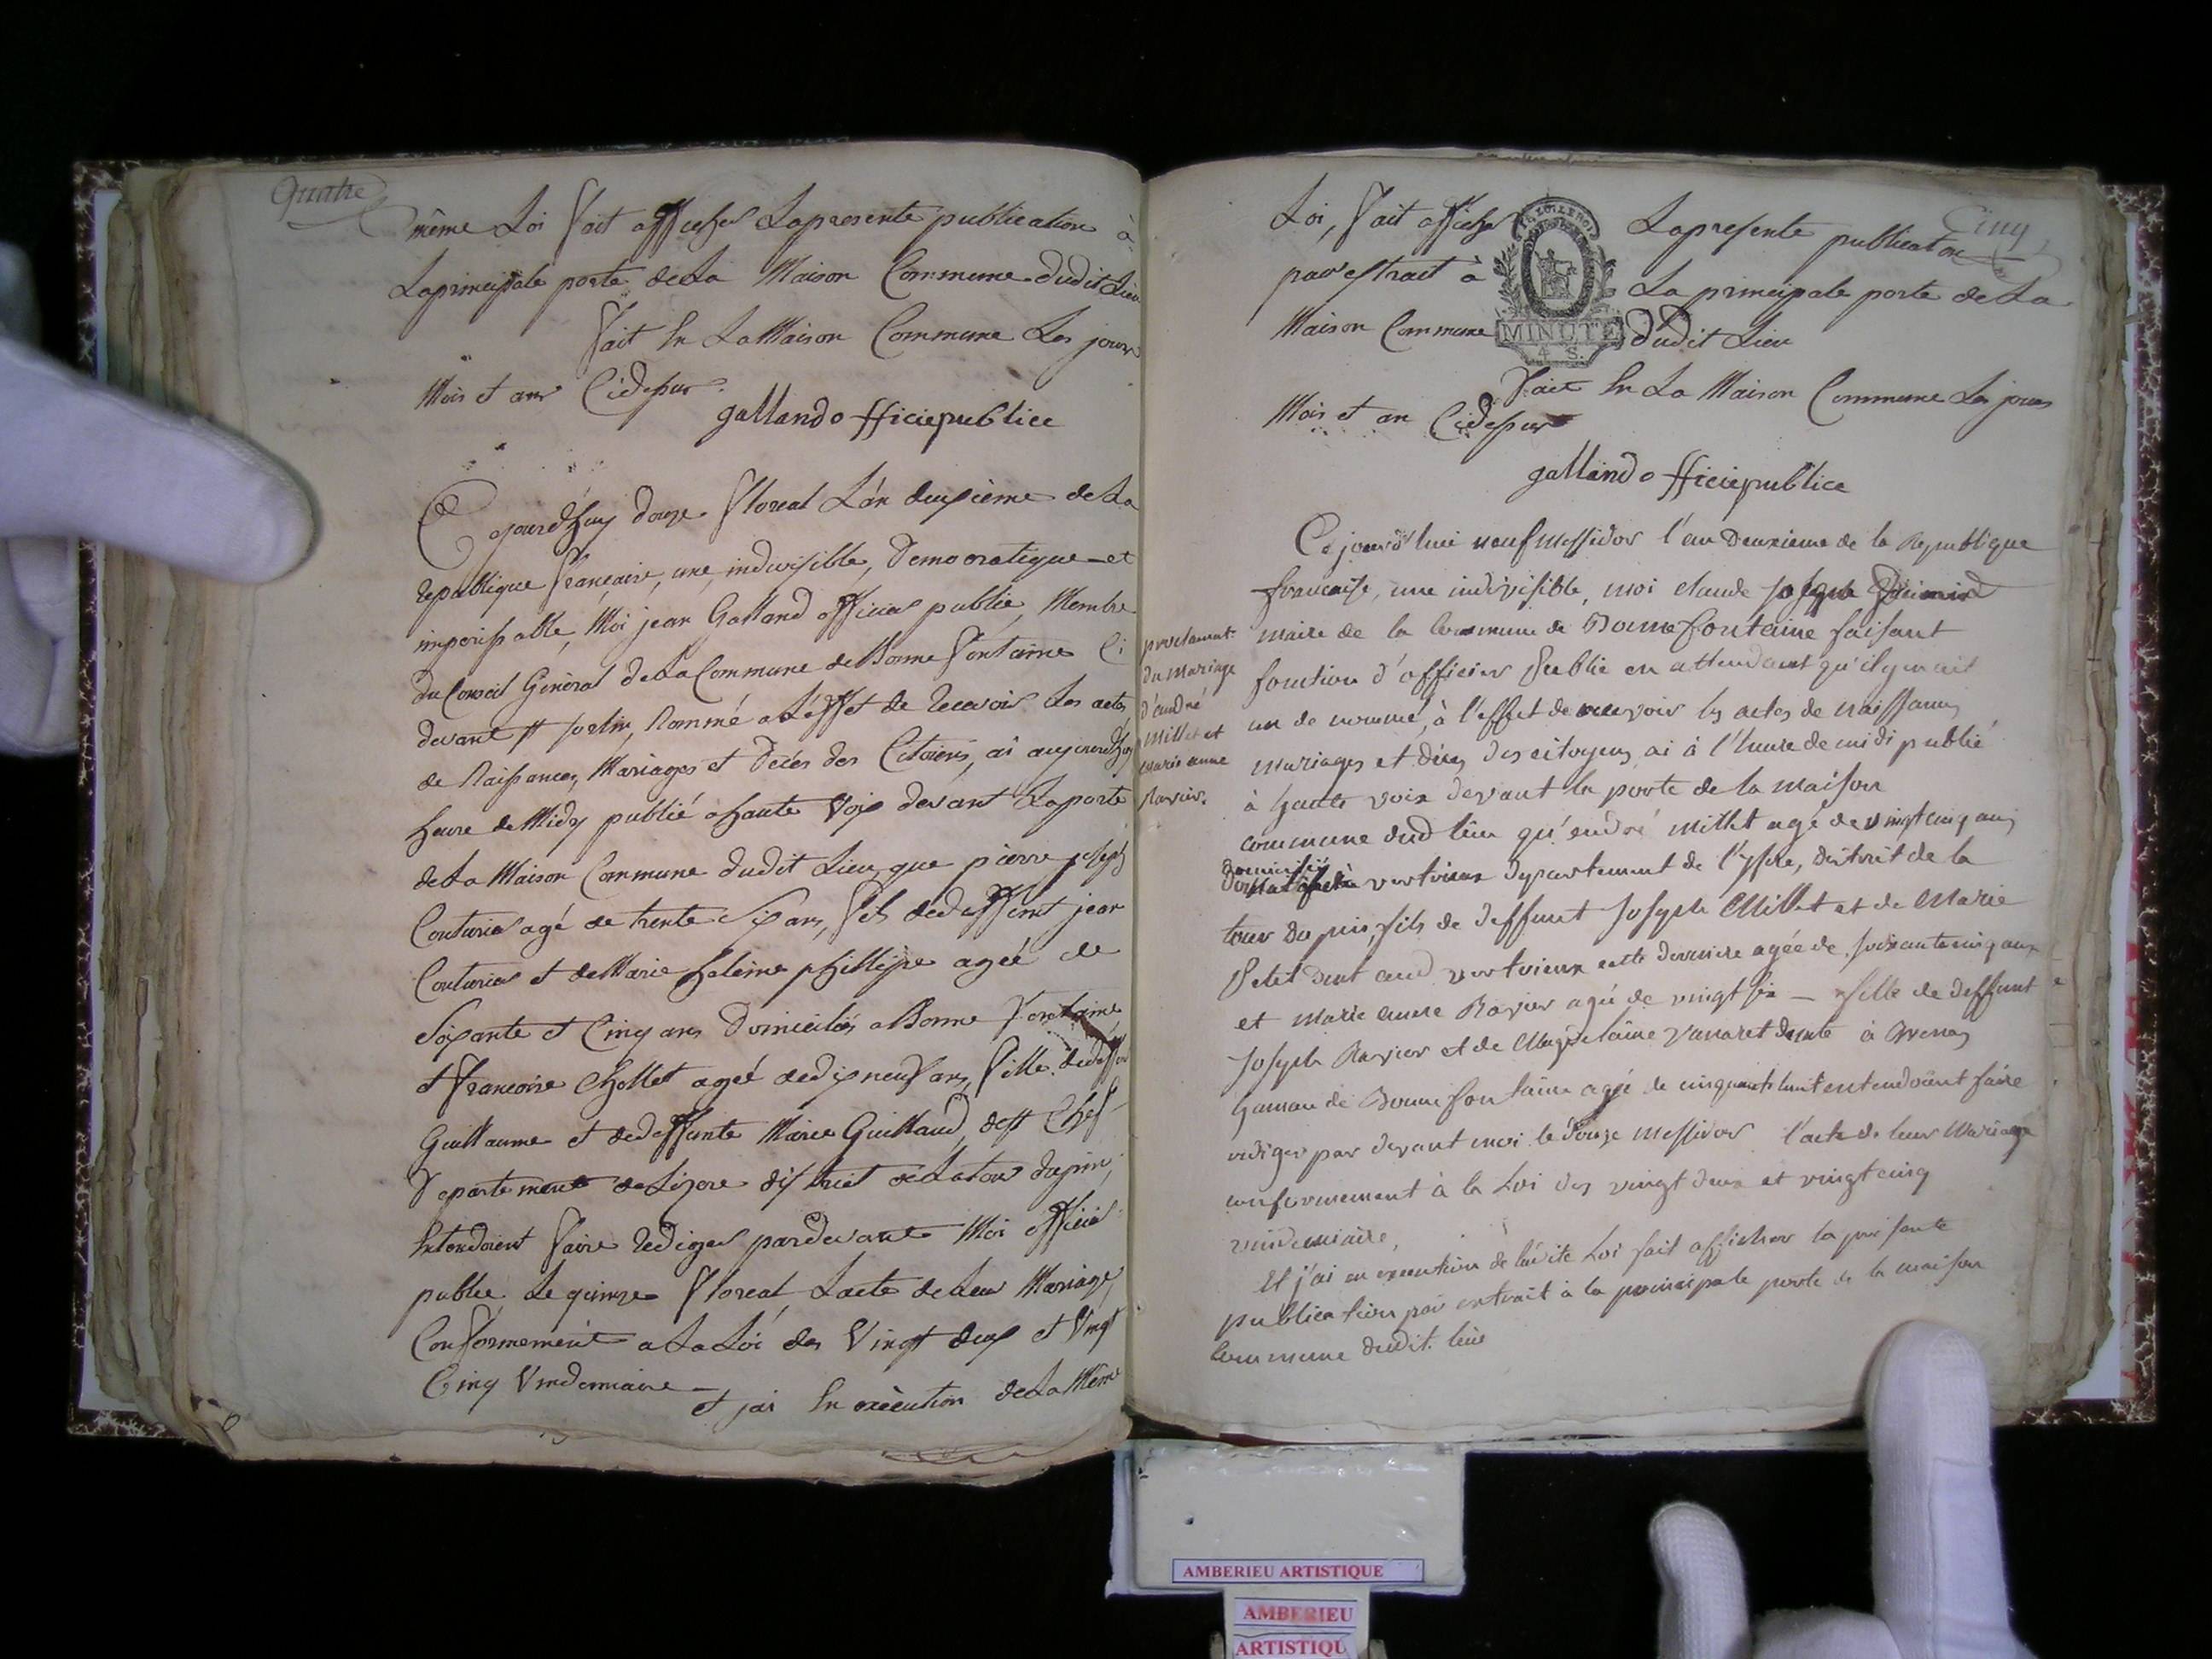 Quatre
même Loi fait afficher La presente publication à
La principale porte de La Maison Commune dudit Lieu
fait En La Maison Commune Les jours
Mois et ans Cidessus.
galland officie publice
Cejourd'huy douze floreal L'an deuxieme de La
republique francaise, une, indivisible, Democratique et
imperissable, Moi jean Galland officier public, Membre
du Conseil Géneral de La Commune de Bonne fontaine Ci
devant nommé a L'effet de recevoir Les actes
de Naissances, Mariages et Décès des Citoiens, ai aujourd'huy
heure de Midy publié a haute Voix devant La porte
de La Maison Commune dudit Lieu, que pierre joseph
Couturier agé de trente Six ans, fils de deffunt jean
Couturier et de Marie heleine phillipe agée de
Soixante et Cinq ans Domiciliés a Bonne fontaine
et francoise Chollet agée de dix neuf ans, fille de deffunt
Guillaume et de deffunte Marie Guillaud, de St Chef
Departement de Lizere district de La tour dupin,
Entendoient faire rediger pardevant Moi officier
public Le quinze floreal Lacte de Leur Mariage,
Conformement a La Loi des Vingt deux et Vingt
Cinq Vindemiaire
et jai En exècution de La Même
Cinq
Loi, fait afficher La presente publication
par extrait à La principale porte de La
Maison Commune dudit Lieu
MINUTE
4 S.
fait En La Maison Commune Les jours
Mois et an Cidessus
galland officie publice
proclamat.
du mariage
d'andré
millet et
marie anne
Ravier.
Cejourd'hui neuf messidor l'an Deuxieme de la Republique
francaise, une indivisible, moi claude joseph
maire de la Commune de Bonnefontaine faisant
fonction d'officier Public en attendant qu'il y en ait
un de nommé, à l'effet de recevoir les actes de naissances
mariages et déces des citoyens ai à l'heure de midi publié
à haute voix devant la porte de la maison
commune dud lieu qu'andré millet agé de vingt cinq ans
domicilié
à vertrieux departement de l'ysere, district de la
tour du pin, fils de deffunt joseph Millet et de Marie
Petit dint aud vertrieux cette derniere agée de soixante cinq ans
et marie anne Ravier agée de vingt six — fille de deffunt
joseph Ravier et de Magdelaine vanaret à
hamau de Bonnefontaine agée de cinquante huit entendoient faire
rediger par devant moi le douze messidor l'acte de leur Mariage
conformement à la Loi des vingt deux et vingt cinq
vindemiaire,
Et j'ai en execution de ladite Loi fait afficher la presente
publication par extrait à la principale porte de la maison
Commune dudit lieu
AMBERIEU ARTISTIQUE
AMBERIEU
ARTISTIQU